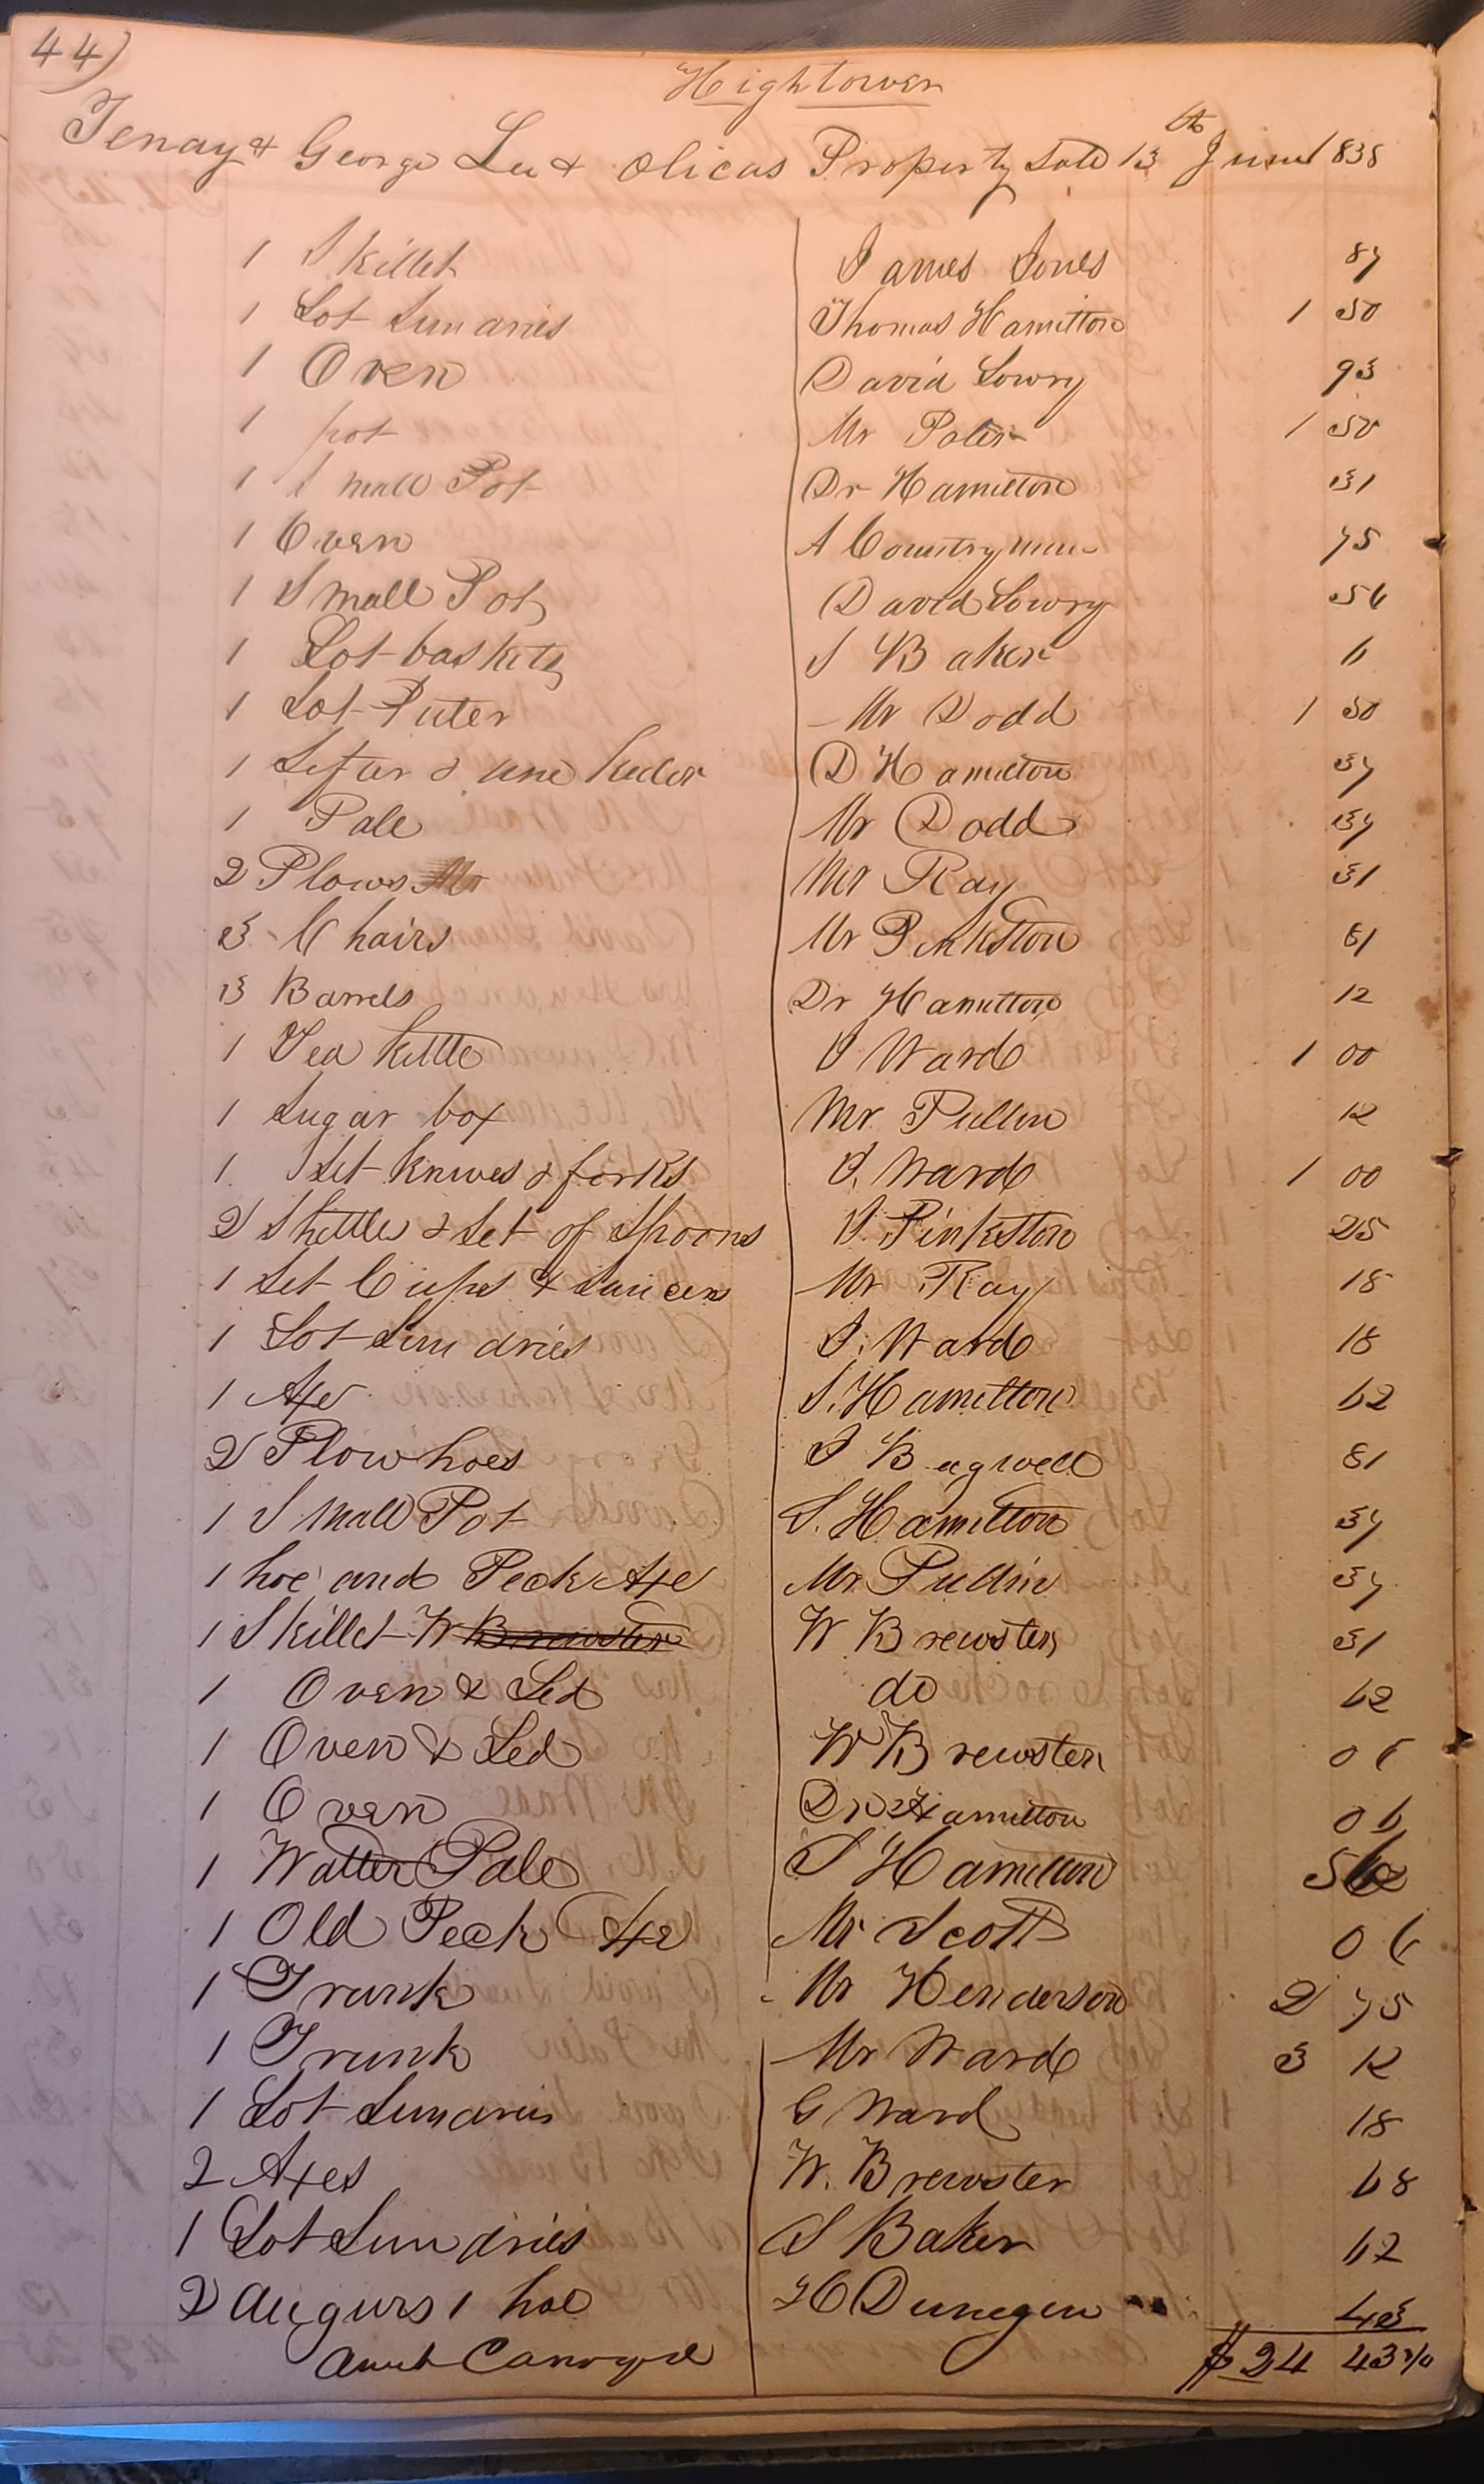 44)
Hightower
Tenay & George Lee & Olicas Property Sale 13th June 1838
1 Skillet James Jones 87
1 Lot Sundries Thomas Hamilton 1 50
1 Oven David Lowry 93
1 pot Mr 1 50
1 Small Pot Dr Hamilton 31
1 Oven A Countryman 75
1 Small Pot David Lowry 56
1 Lot baskets S Baker 6
1 Lot Puter Mr Dodd 1 50
1 Sifter & one D Hamilton 37
1 Pale Mr Dodd 37
2 Plows Mr Ray 31
3 Chairs Mr Pinkston 81
3 Barrels Dr Hamilton 12
1 Tea Kettle J Ward 1 00
1 Sugar box Mr Pullin 12
1 Set Knives & forks J. Ward 1 00
2 Skettles & Set of Spoons J. Pinkston 25
1 Set Cups & Saucers Mr Ray 18
1 Lot Sundries J. Ward 18
1 Axe S. Hamilton 62
2 Plow hoes J Bagwell 81
1 Small Pot S. Hamilton 37
1 hoe and Peck Axe Mr Pullin 37
1 Skillet W Brewster W Brewster 31
1 Oven & Led do 62
1 Oven & Led W Brewster 06
1 Oven Dr Hamilton 06
1 Watter Pale S Hamilton 56
1 Old Peck Axe Mr Scott 06
1 Trunk Mr Henderson 2 75
1 Trunk Mr Ward 3 12
1 Lot Sundries G Ward 18
2 Axes W. Brewster 68
1 Lot Sundries S Baker 62
2 Augurs 1 hoe H Dunegin 43
Amt Carryd $24 43 3/4